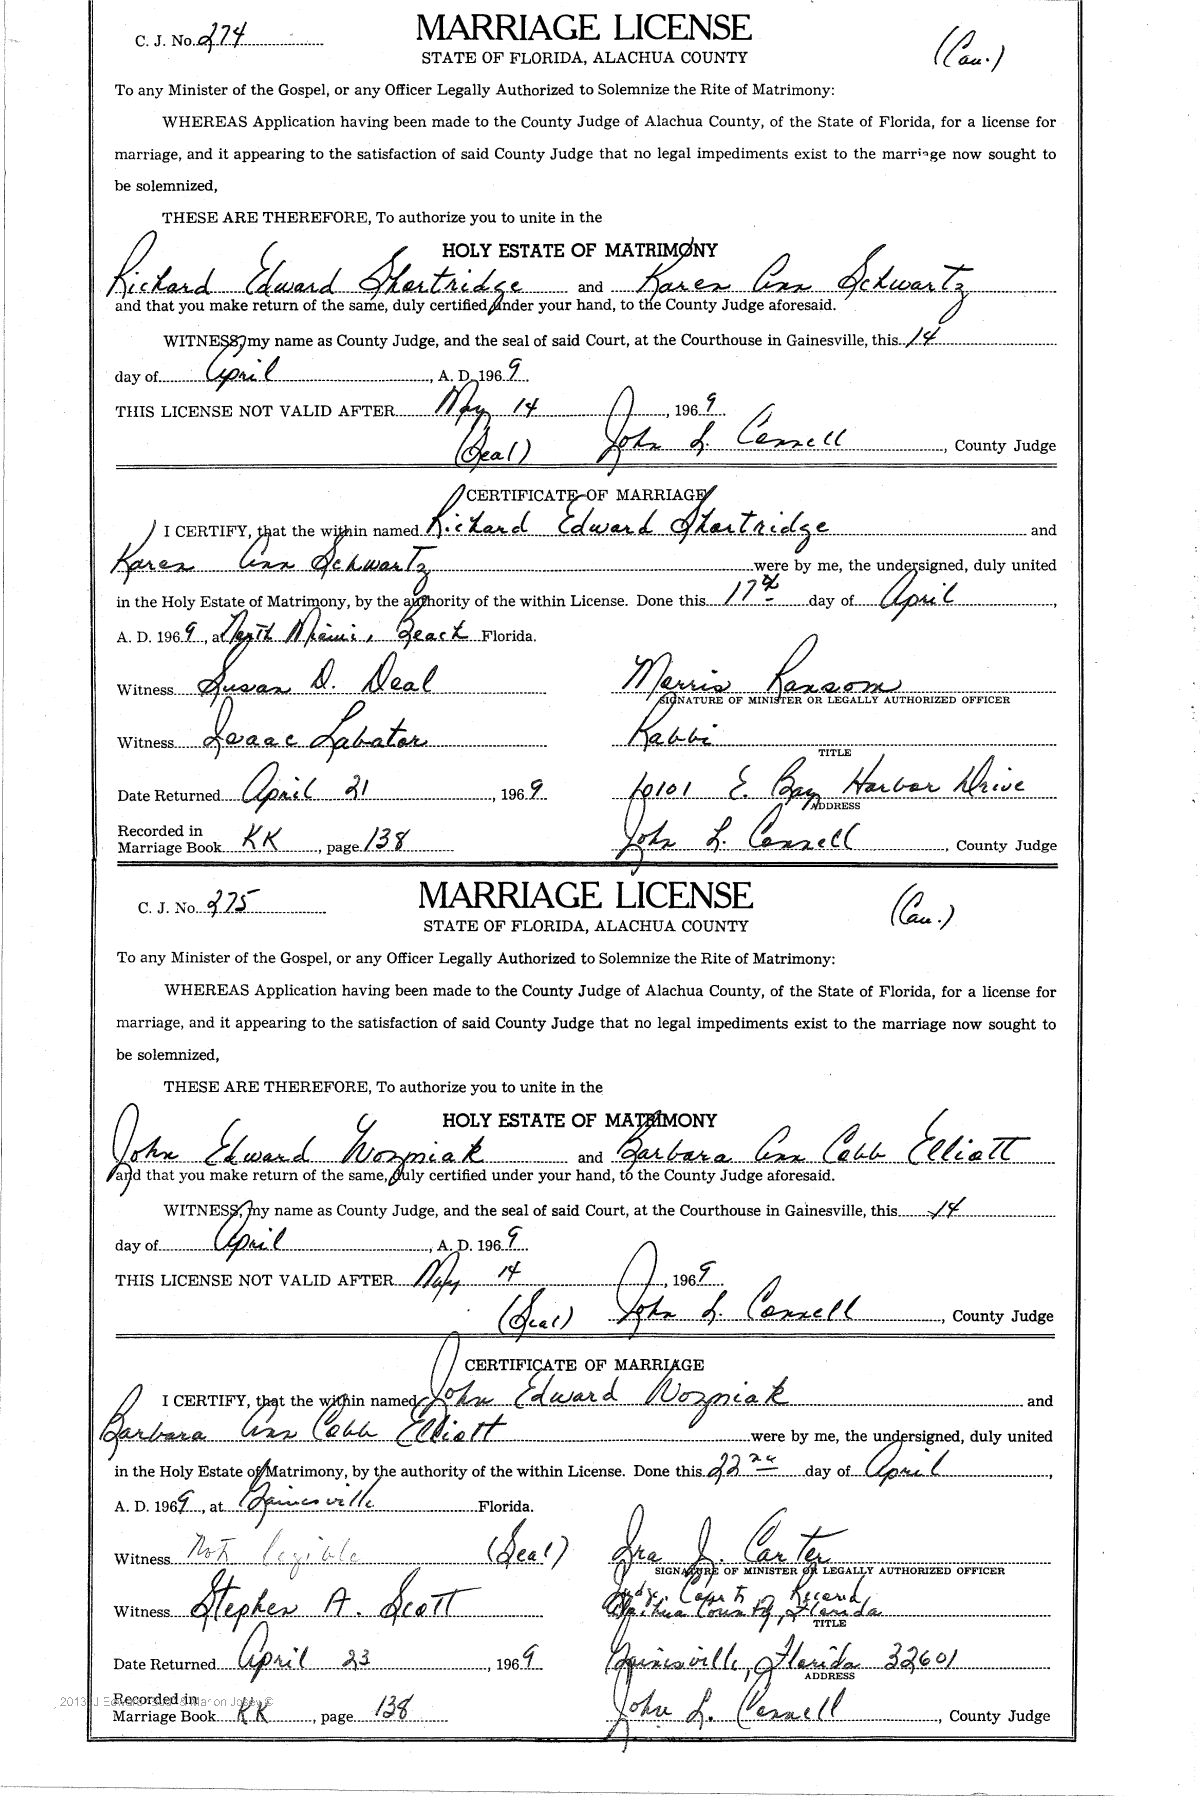 C. J. No. 274
MARRIAGE LICENSE
STATE OF FLORIDA, ALACHUA COUNTY
(Cau.)
To any Minister of the Gospel, or any Officer Legally Authorized to Solemnize the Rite of Matrimony:
WHEREAS Application having been made to the County Judge of Alachua County, of the State of Florida, for a license for
marriage, and it appearing to the satisfaction of said County Judge that no legal impediments exist to the marriage now sought to
be solemnized,
THESE ARE THEREFORE, To authorize you to unite in the
HOLY ESTATE OF MATRIMONY
Richard Edward Shortridge and Karen Ann Schwartz
and that you make return of the same, duly certified under your hand, to the County Judge aforesaid.
WITNESS, my name as County Judge, and the seal of said Court, at the Courthouse in Gainesville, this 14
day of April, A. D. 1969
THIS LICENSE NOT VALID AFTER May 14, 1969
(Seal) John L. Connell, County Judge
CERTIFICATE OF MARRIAGE
I CERTIFY, that the within named Richard Edward Shortridge and
Karen Ann Schwartz were by me, the undersigned, duly united
in the Holy Estate of Matrimony, by the authority of the within License. Done this 17th day of April,
A. D. 1969, at North Miami, Beach Florida.
Witness Susan D. Deal Morris Ransom
SIGNATURE OF MINISTER OR LEGALLY AUTHORIZED OFFICER
Witness Isaac Labator Rabbi
TITLE
Date Returned April 21, 1969 10101 E. Bay Harbor Drive
ADDRESS
Recorded in
Marriage Book KK, page 138 John L. Connell, County Judge
C. J. No. 275
MARRIAGE LICENSE
STATE OF FLORIDA, ALACHUA COUNTY
(Cau.)
To any Minister of the Gospel, or any Officer Legally Authorized to Solemnize the Rite of Matrimony:
WHEREAS Application having been made to the County Judge of Alachua County, of the State of Florida, for a license for
marriage, and it appearing to the satisfaction of said County Judge that no legal impediments exist to the marriage now sought to
be solemnized,
THESE ARE THEREFORE, To authorize you to unite in the
HOLY ESTATE OF MATRIMONY
John Edward Wozniak and Barbara Ann Cobb Elliott
and that you make return of the same, duly certified under your hand, to the County Judge aforesaid.
WITNESS, my name as County Judge, and the seal of said Court, at the Courthouse in Gainesville, this 14
day of April, A. D. 1969
THIS LICENSE NOT VALID AFTER May 14, 1969
(Seal) John L. Connell, County Judge
CERTIFICATE OF MARRIAGE
I CERTIFY, that the within named John Edward Wozniak and
Barbara Ann Cobb Elliott were by me, the undersigned, duly united
in the Holy Estate of Matrimony, by the authority of the within License. Done this 22nd day of April,
A. D. 1969, at Gainesville Florida.
Witness Not legible (Seal) Ira J. Carter
SIGNATURE OF MINISTER OR LEGALLY AUTHORIZED OFFICER
Judge, Court of Record
Witness Stephen A. Scott Alachua County, Florida
TITLE
Date Returned April 23, 1969 Gainesville, Florida 32601
ADDRESS
Recorded in
Marriage Book KK, page 138 John L. Connell, County Judge